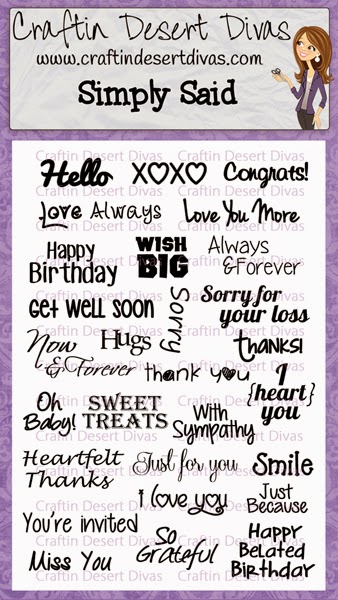 Craftin Desert Divas
www.craftindesertdivas.com
Simply Said
Craftin Desert Divas Craftin Desert Divas
Hello XOXO Congrats!
Love Always Love You More
Happy
Birthday
WISH
BIG
Always
&Forever
Get well soon
Sorry
Sorry for
your loss
Now
& Forever
Hugs
THANKS!
thank you
I
{heart}
you
Oh
Baby!
SWEET
TREATS
With
Sympathy
Heartfelt
Thanks
Just for you
Smile
I love you
Just
Because
You're invited
Miss You
So
Grateful
Happy
Belated
Birthday
Craftin Desert Divas Craftin Desert Divas